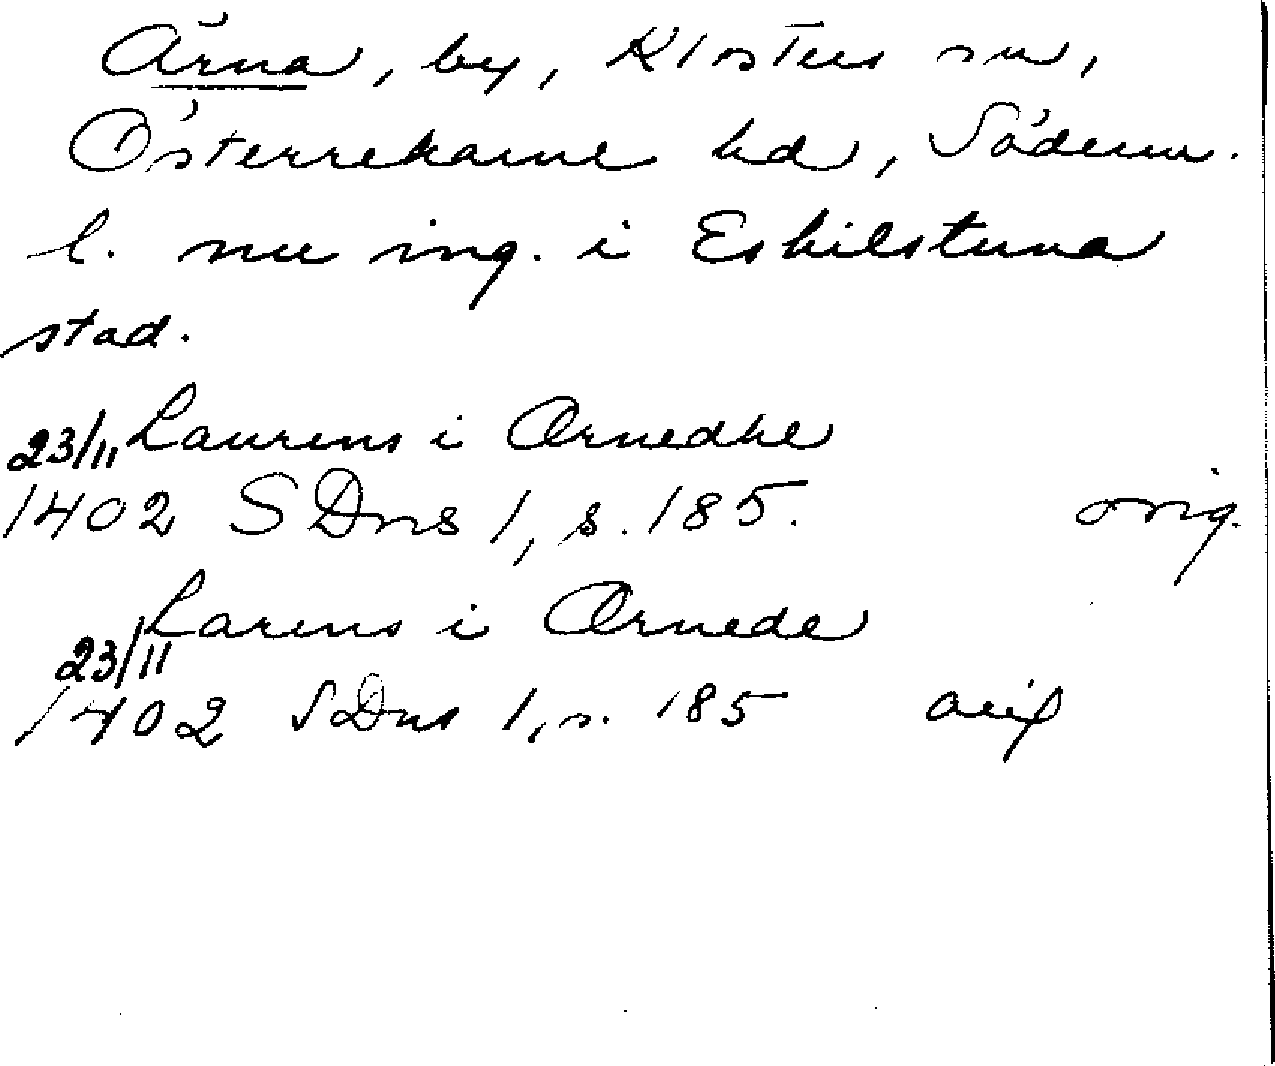 Ärna, by, Klosters sn,
Österrekarne hd, Söderm.
l. nu ing. i Eskilstuna
stad.
23/11 Laurens i Ærnedhe
1402 SDns 1, s. 185. orig.
23/11 Larens i Ærnede
1402 SDns 1, s. 185